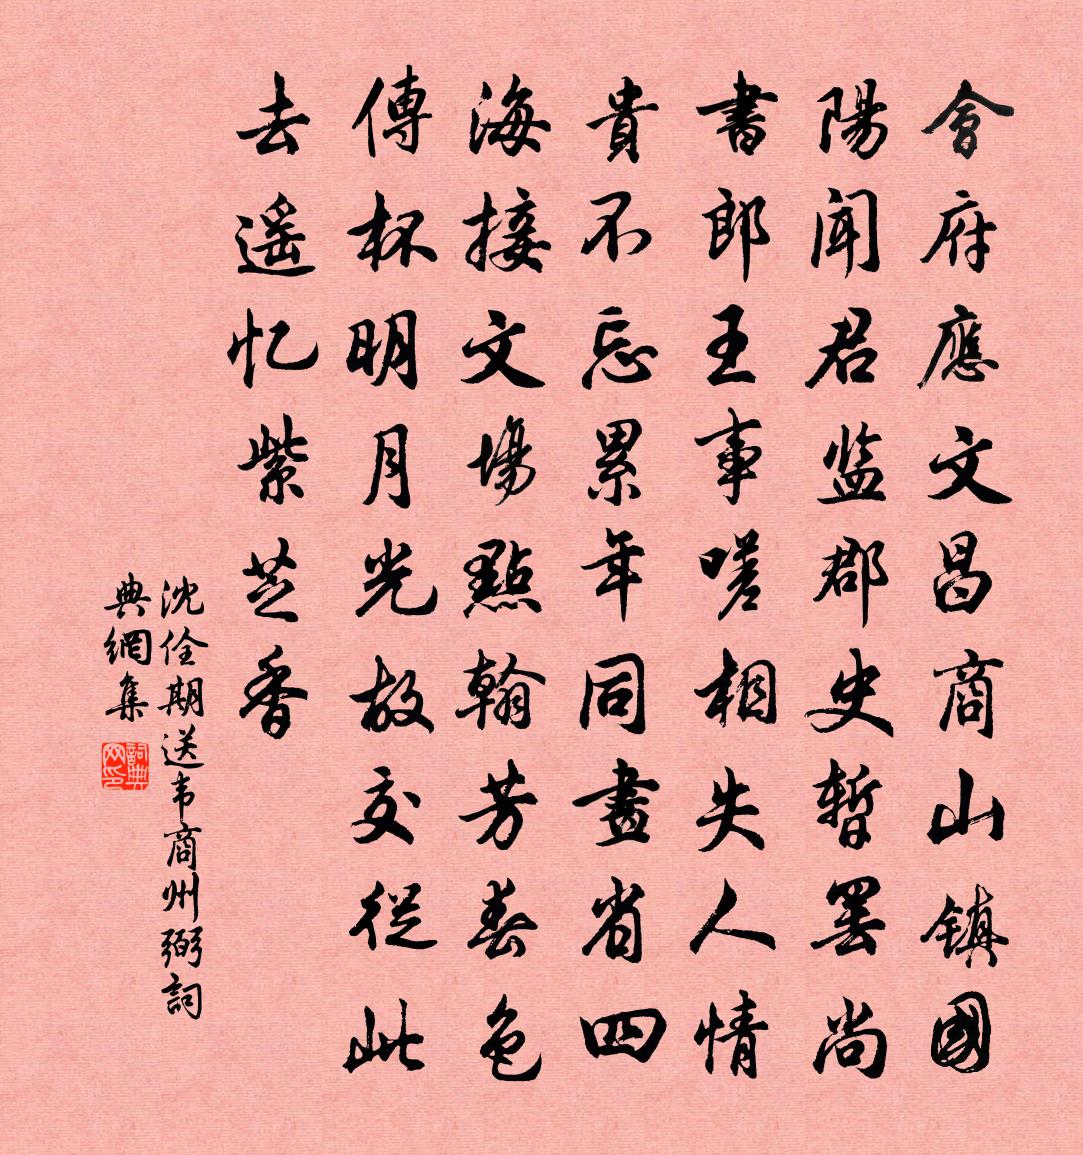 會府應文昌商山镇國
陽闻君监郡史暫罢尚
書郎王事嗟相失人情
貴不忘累年同畫省四
海接文場點翰芳春色
傳杯明月光故交從此
去遥忆紫芝香
沈佺期送韦商州弼詞
典網集
詞典网印